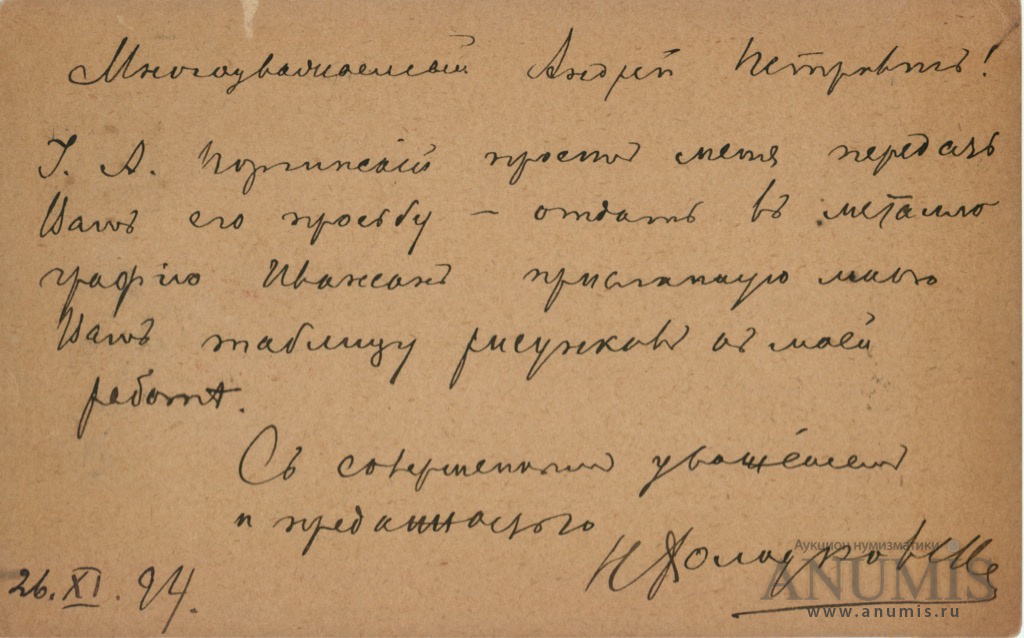 Многоуважаемый Андрей Петровичъ!
І. А. Порчинскій проситъ меня передать
Вамъ его просьбу – отдать въ метало
графію Ивансонъ присланную мною
Вамъ таблицу рисунковъ къ моей
работѣ.
Съ совершеннымъ уваженіемъ
и преданностью
Н Холодковскій
26. XI. 94.
Аукцион нумизматики
ANUMIS
www.anumis.ru